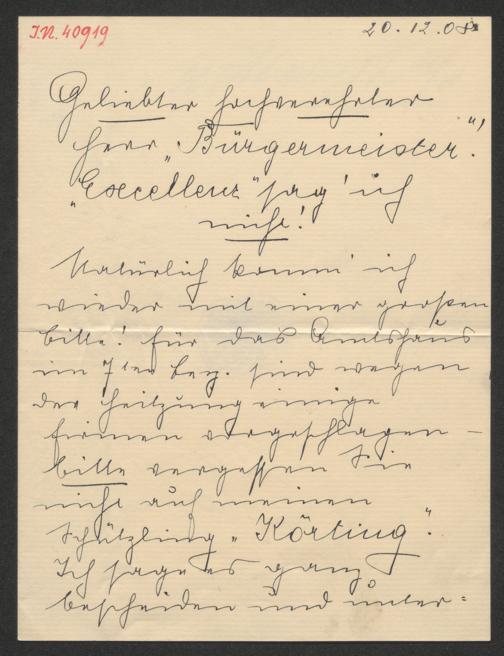 I.N. 40919
20.12.08
Geliebter hochverehrter
Herr „Bürgermeister“!
„Excellenz“ sag' ich
nicht!
Natürlich komm' ich
wieder mit einer großen
Bitte! für das Amtshaus
im 7ten Bez. sind wegen
der Heitzung einige
Firmen vorgeschlagen –
bitte vergessen Sie
nicht auf meinen
Schützling „Körting“.
Ich sage es ganz
bescheiden und unter=